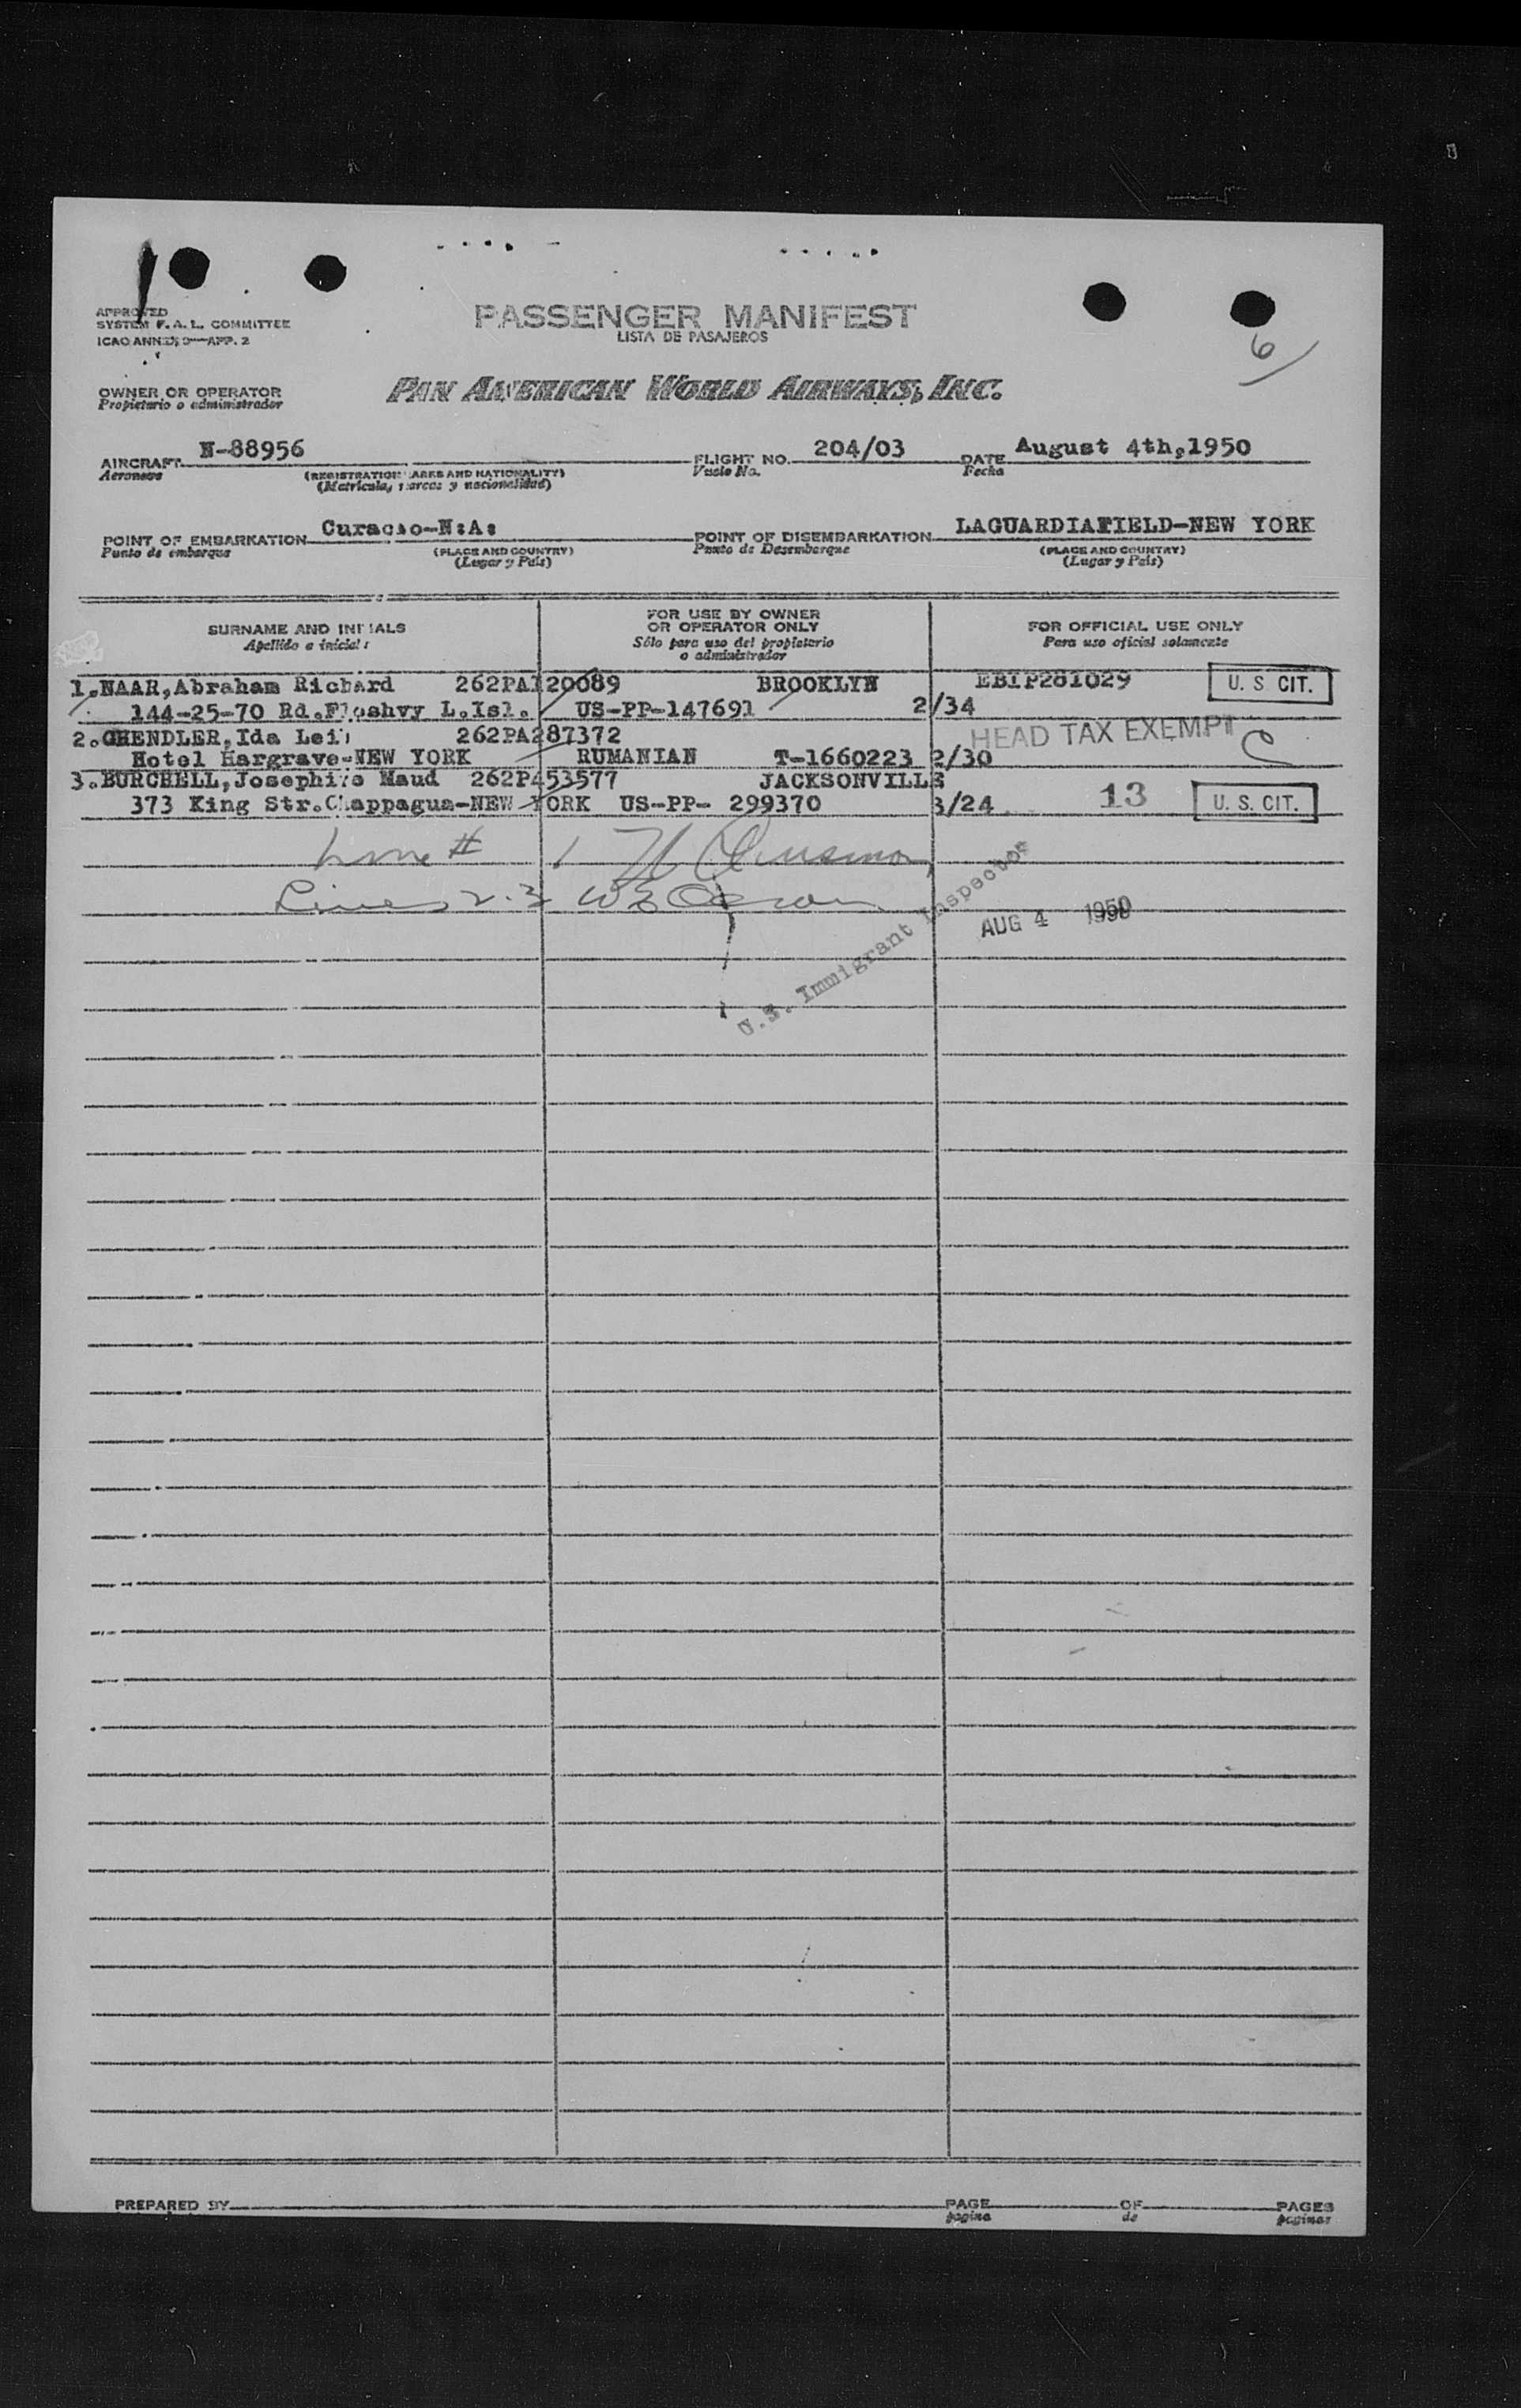 APPROVED
SYSTEM F. A. L. COMMITTEE
PASSENGER MANIFEST
LISTA DE PASAJEROS
6
OWNER OR OPERATOR
Propietario o administrador
PAN AMERICAN WORLD AIRWAYS, INC.
AIRCRAFT N-88956 FLIGHT NO. 204/03 DATE August 4th,1950
Aeronave Vuelo No. Fecha
(Matricula, marcas y nacionalidad)
POINT OF EMBARKATION Curacao-N:A: POINT OF DISEMBARKATION LAGUARDIAFIELD-NEW YORK
Punto de embarque (PLACE AND COUNTRY) Punto de Desembarque (PLACE AND COUNTRY)
(Lugar y País) (Lugar y País)
SURNAME AND INITIALS FOR USE BY OWNER OR OPERATOR ONLY FOR OFFICIAL USE ONLY
Apellido e iniciales Sólo para uso del propietario o administrador Para uso oficial solamente
1.NAAR,Abraham Richard 262PA120089 BROOKLYN EBIP281029 U. S CIT.
144-25-70 Rd. L.Isl. US-PP-147691 2/34
2.GHENDLER,Ida 262PA287372 HEAD TAX EXEMPT
Hotel Hargrave-NEW YORK RUMANIAN T-1660223 2/30
3.BURCHELL,Josephine Maud 262P453577 JACKSONVILLE
373 King Str.Chappagua-NEW YORK US-PP- 299370 3/24 13 U. S. CIT.
Line # 1
Lines 2-3
U.S. Immigrant Inspector
AUG 4 1950
PREPARED BY PAGE OF PAGES
pagina de paginas